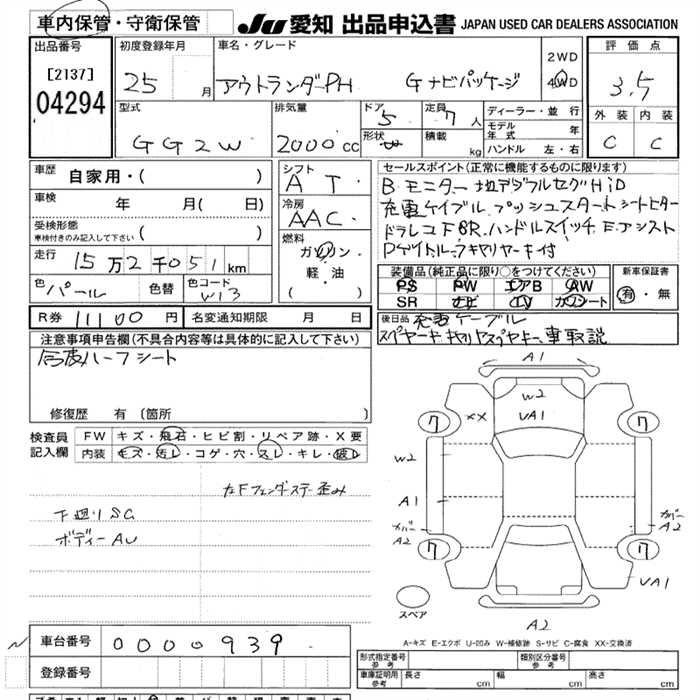 車内保管・守衛保管 JU 愛知 出品申込書 JAPAN USED CAR DEALERS ASSOCIATION
出品番号 初度登録年月 車名・グレード 評価点
[2137] 25 月 アウトランダーPH Gナビパッケージ 2WD 4WD 3.5
04294
型式 排気量 ドア 定員 ディーラー・並行 外装 内装
GG2W 2000cc 5 7人 モデル年式 年 C C
形状 積載 kg ハンドル 左・右
車歴 自家用・( ) シフト AT セールスポイント(正常に機能するものに限ります)
車検 年 月( 日) 冷房 AAC
B.モニター 地デジフルセグHiD
受検形態 車検付きのみ記入して下さい ( ) 燃料 ガソリン・軽・油 ( )
充電ケイブル.プッシュスタート シートヒーター
ドラレコ F8R.ハンドルスイッチ.E.アシスト
走行 15万2千051km
色 パール 色替 色コード W13
装備品(純正品に限り○をつけてください) 新車保証書
PS PW エアB AW 有・無
SR ナビ TV カワシート
R券 11100円 名変通知期限 月 日
後日品 充電ケーブル
注意事項申告欄(不具合内容等は具体的に記入して下さい)
ハーフシート
修復歴 有(箇所 )
検査員記入欄 FW キズ・飛石・ヒビ割・リペア跡・X要
内装 キズ・汚レ・コゲ・穴・スレ・キレ・破レ
左Fフェンダーステー歪み
下廻りSC
ボディーAU
A1
W2
XX VA1
7 7
W2
A1
カバー A2 カバー A2
7 7
VA1
スペア
A2
A-キズ E-エクボ U-凹み W-補修跡 S-サビ C-腐食 XX-交換済
車台番号 0000939
登録番号
形式指定番号 参考 類別区分番号 参考
車庫証明用 参考 長さ cm 幅 cm 高さ cm